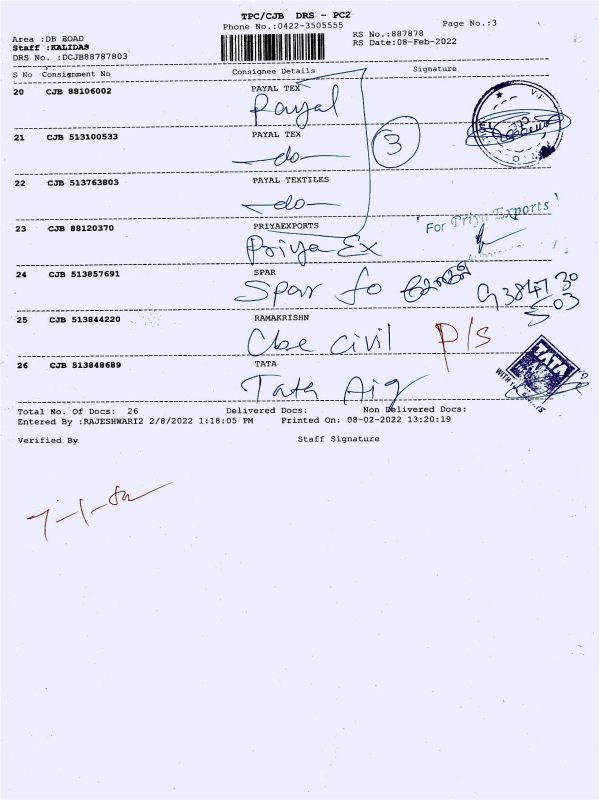 TPC/CJB DRS - PC2
Phone No.:0422-3505555
Page No.:3
Area :DB ROAD
RS No.:887878
Staff :KALIDAS
RS Date:08-Feb-2022
DRS No. :DCJB88787803
S No Consignment No Consignee Details Signature
20 CJB 88106002 PAYAL TEX
Payal
21 CJB 513100533 PAYAL TEX
-do-
3
22 CJB 513763803 PAYAL TEXTILES
-do-
23 CJB 88120370 PRIYAEXPORTS
For Priya Exports
Priya Ex
24 CJB 513857691 SPAR
Spar fo
25 CJB 513844220 RAMAKRISHN
Cbe civil P/s
26 CJB 513848689 TATA
TATA
Tata Aig
Total No. Of Docs: 26 Delivered Docs: Non Delivered Docs:
Entered By :RAJESHWARI2 2/8/2022 1:18:05 PM Printed On: 08-02-2022 13:20:19
Verified By Staff Signature